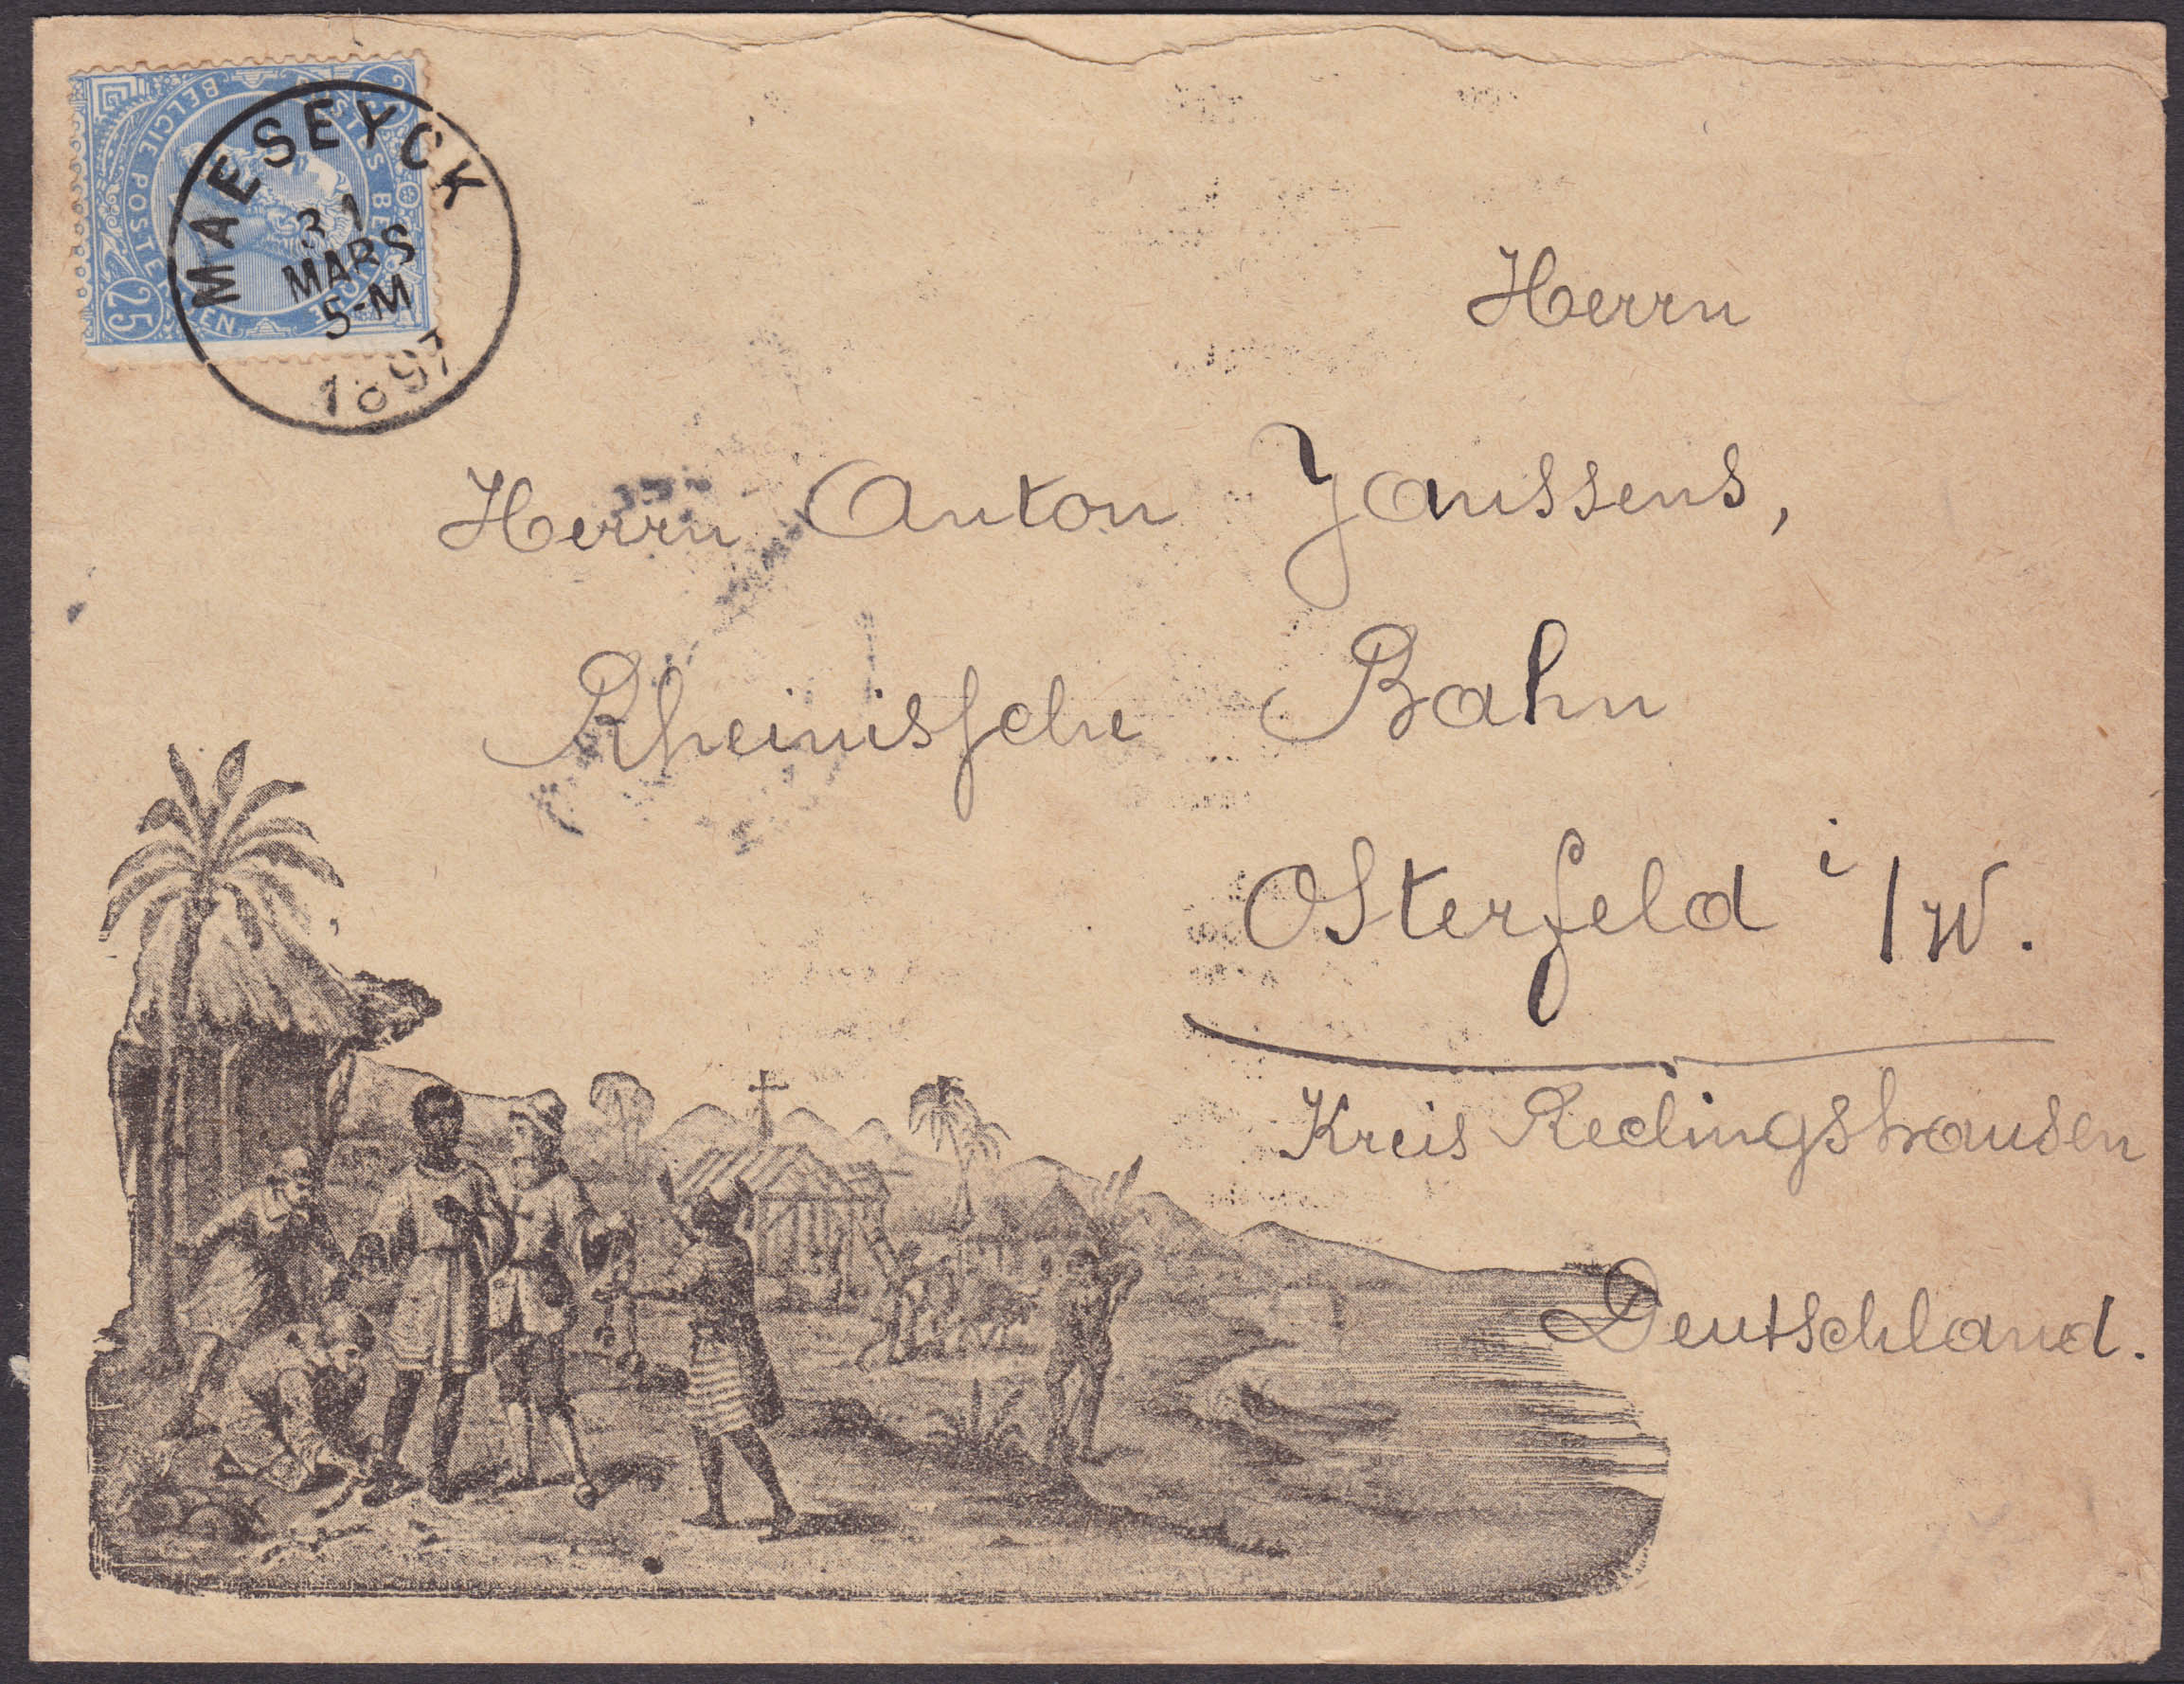 MAESEYCK
31
MARS
5-M
1897
25
BELGIE POSTERIJEN
POSTES BELGIQUE
25
Herrn
Herrn Anton Janssens,
Rheinissche Bahn
Osterfeld i/W.
Kreis Reclingshausen
Deutschland.